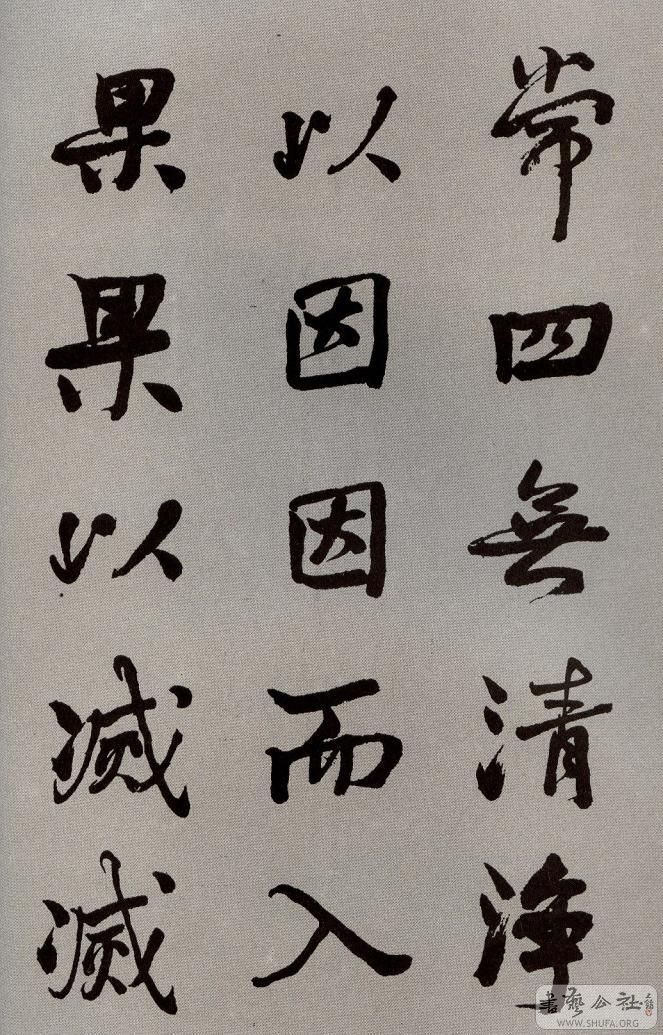 常四無清淨
以因因而入
果果以滅滅
書藝公社
WWW.SHUFA.ORG